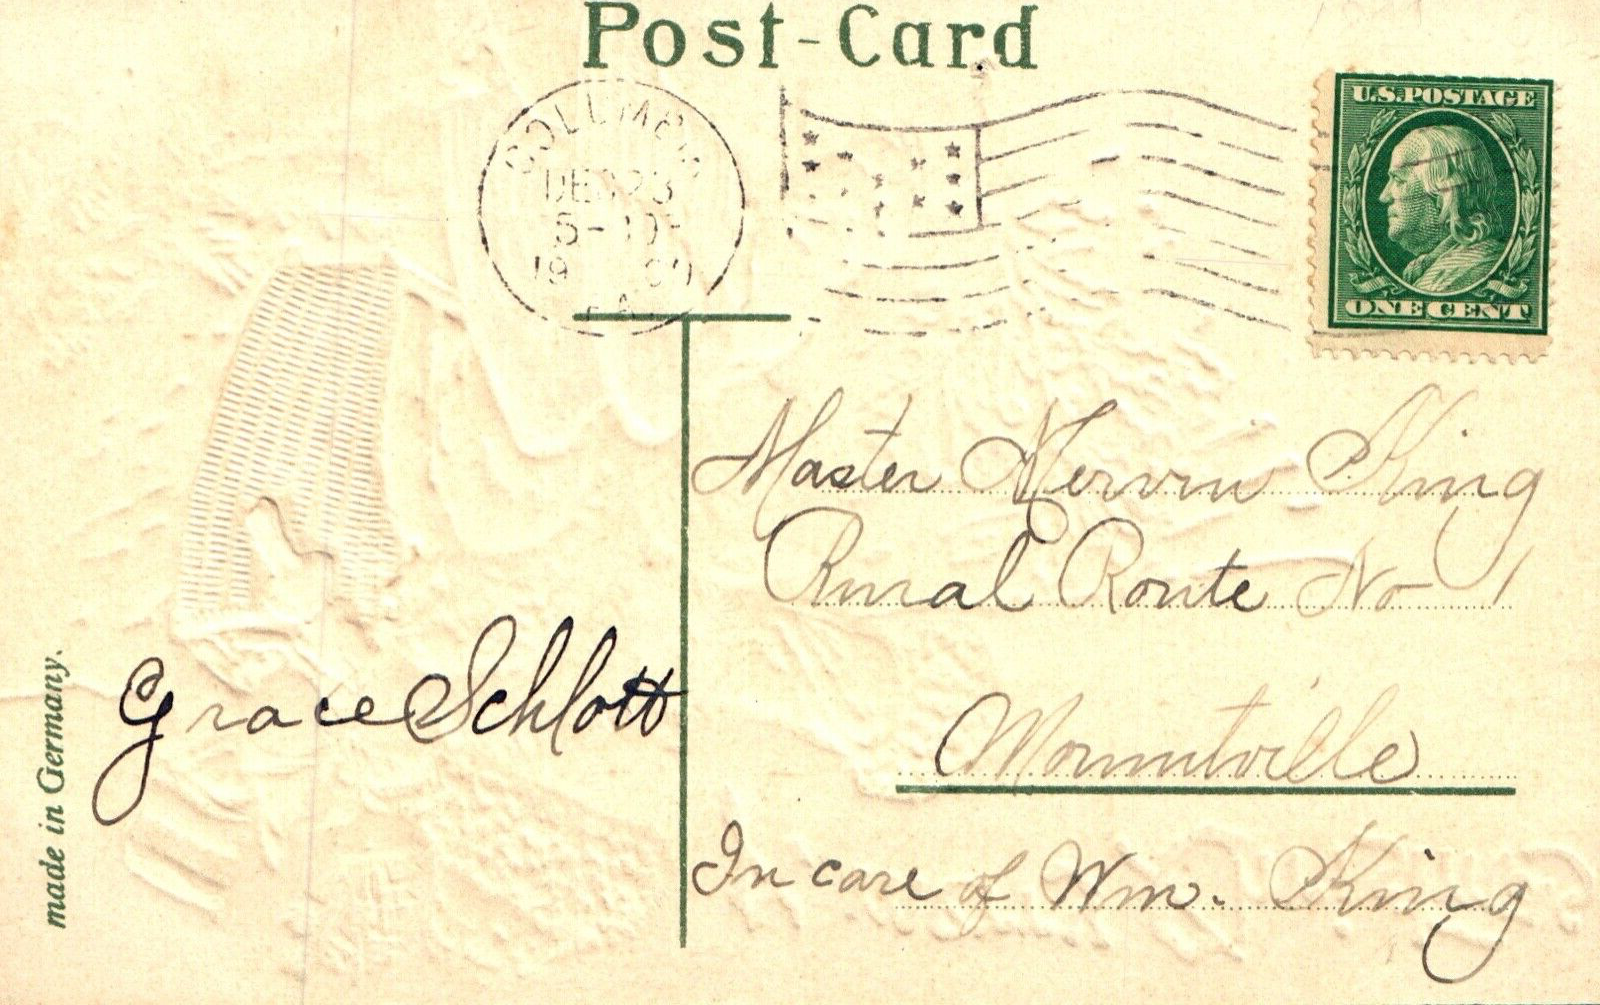 Post-Card
U.S. POSTAGE
ONE CENT
DEC 23
19 09
PA
Master Mervin King
Rural Route No 1
Mountville
In care of Wm. King
Grace Schlott
made in Germany.